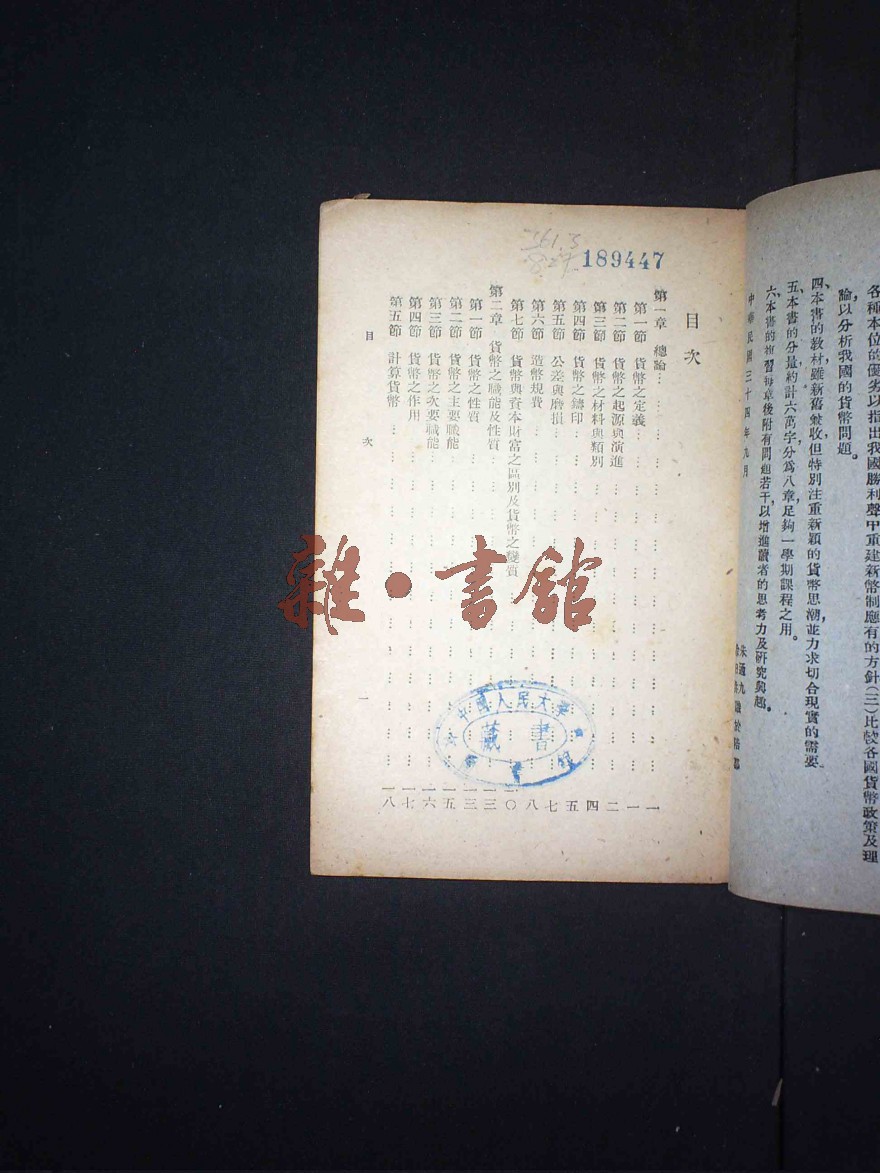 各種本位的優劣以指出我國勝利聲中重建新幣制應有的方針(三)比較各國貨幣政策及理
論,以分析我國的貨幣問題。
四、本書的教材雖新舊兼收但特別注重新穎的貨幣思潮,並力求切合現實的需要
五、本書的分量約計六萬字,分爲八章足夠一學期課程之用。
六、本書的每章後附有問題若干以增進讀者的思考力及研究興趣。
中華民國三十四年九月
朱通九
189447
目次
第一章 總論 一
第一節 貨幣之定義 一
第二節 貨幣之起源與演進 二
第三節 貨幣之材料與類別 四
第四節 貨幣之鑄印 五
第五節 公差與磨損 七
第六節 造幣規費 八
第七節 貨幣與資本財富之區別及貨幣之變質 一〇
第二章 貨幣之職能及性質 一三
第一節 貨幣之性質 一三
第二節 貨幣之主要職能 一五
第三節 貨幣之次要職能 一六
第四節 貨幣之作用 一七
第五節 計算貨幣 一八
目次 一
雜·書館
中國人民大學
藏書